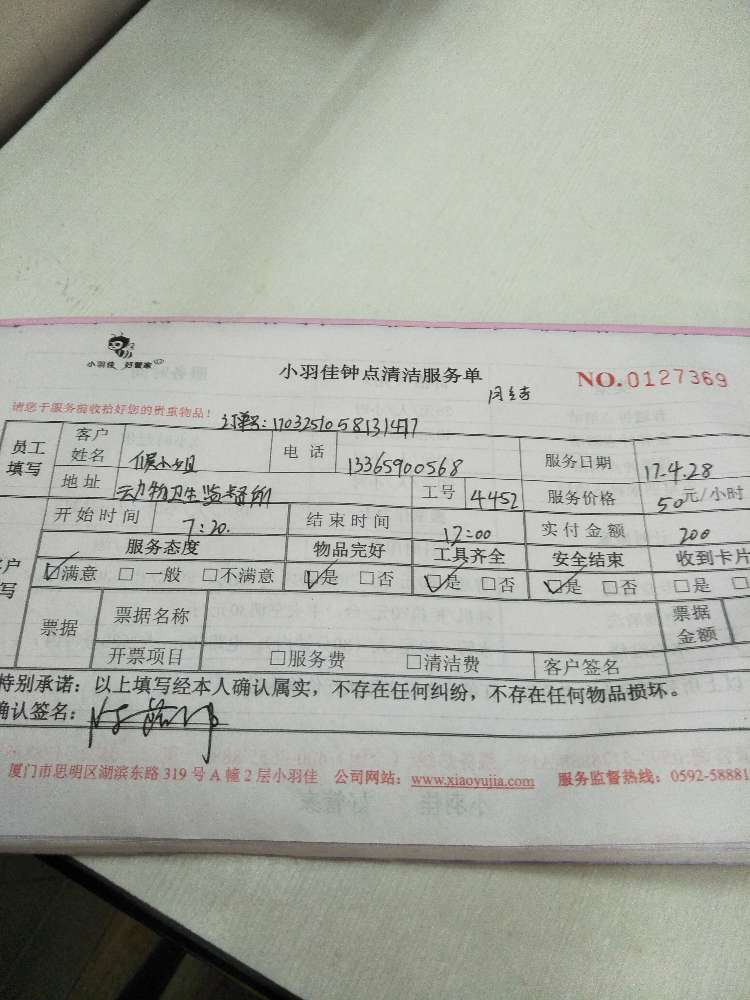 小羽佳 好管家
小羽佳钟点清洁服务单
NO.0127369
请您于服务前收拾好您的贵重物品！
订单号：1703251058131417
员工填写 客户姓名 侯小姐 电话 13365900568 服务日期 17.4.28
地址 动物卫生监督所 工号 4452 服务价格 50元/小时
开始时间 7:20. 结束时间 12:00 实付金额 200
服务态度 物品完好 工具齐全 安全结束 收到卡片
☑满意 □一般 □不满意 ☑是 □否 ☑是 □否 ☑是 □否 □是 □
票据 票据名称 票据金额
开票项目 □服务费 □清洁费 客户签名
特别承诺：以上填写经本人确认属实，不存在任何纠纷，不存在任何物品损坏。
确认签名：
厦门市思明区湖滨东路 319 号 A 幢 2 层小羽佳 公司网站：www.xiaoyujia.com 服务监督热线：0592-58881